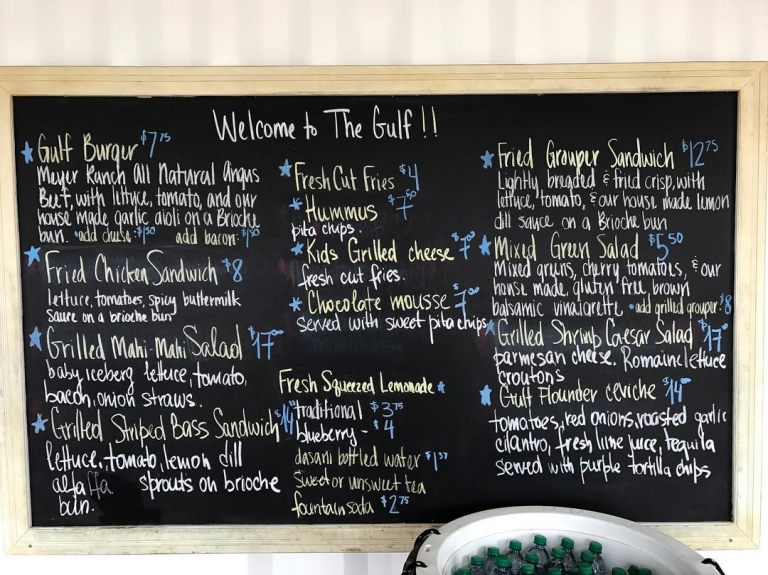 Welcome to The Gulf!!
Gulf Burger $7.75
Meyer Ranch All Natural Angus
Beef, with lettuce, tomato, and our
house made garlic aioli on a Brioche
bun. •add cheese: $.50 add bacon: $1.50
Fried Chicken Sandwich $8
lettuce, tomatoes, spicy buttermilk
sauce on a brioche bun
Grilled Mahi-Mahi Salad $17.00
baby iceberg lettuce, tomato,
bacon, onion straws.
Grilled Striped Bass Sandwich $14
lettuce, tomato, lemon dill
alfalfa sprouts on brioche
bun.
Fresh Cut Fries $4
Hummus $7.50
pita chips.
Kids Grilled cheese $7.00
fresh cut fries.
Chocolate mousse $7.00
served with sweet pita chips
Fresh Squeezed Lemonade
traditional $3.75
blueberry - $4
dasani bottled water
Sweet or unsweet tea
fountain soda $2.75
Fried Grouper Sandwich $12.75
Lightly breaded & fried crisp, with
lettuce, tomato, & our house made lemon
dill sauce on a Brioche bun
Mixed Green Salad $5.50
Mixed greens, cherry tomatoes, & our
house made, gluten free, brown
balsamic vinaigrette •add grilled grouper: $8
Grilled Shrimp Caesar Salad $17.00
parmesan cheese. Romaine lettuce
croutons
Gulf Flounder ceviche $14.00
tomatoes, red onions, roasted garlic
cilantro, fresh lime juice, tequila
served with purple tortilla chips